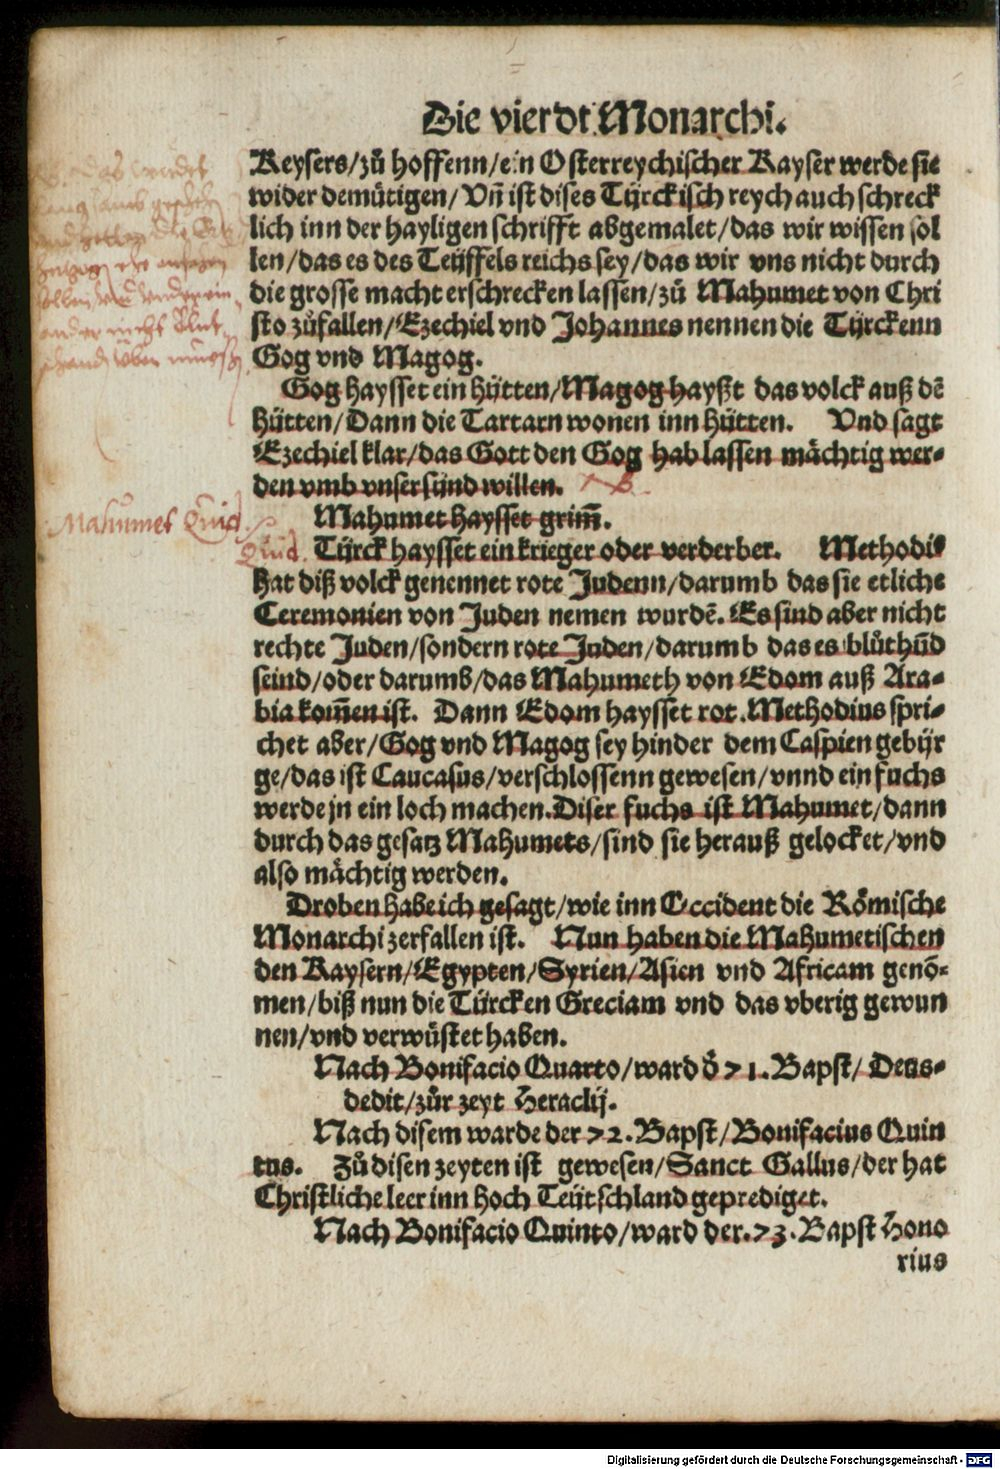 Die vierdt Monarchi.
Keysers/zů hoffenn/ein Osterreychischer Kayser werde sie
wider demütigen/Vñ ist dises Türckisch reych auch schreck
lich inn der hayligen schrifft abgemalet/das wir wissen sol
len/das es des Teüffels reichs sey/das wir vns nicht durch
die grosse macht erschrecken lassen/zů Mahumet von Chri
sto zůfallen/Ezechiel vnd Johannes nennen die Türckenn
Gog vnd Magog.
Gog haysset ein hütten/Magog hayßt das volck auß dē
hütten/Dann die Tartarn wonen inn hütten. Vnd sagt
Ezechiel klar/das Gott den Gog hab lassen mächtig wer-
den vmb vnser sünd willen.
Mahumet Quid
Mahumet haysset grim̄.
Quid. Türck haysset ein krieger oder verderber. Methodiꝰ
hat diß volck genennet rote Judenn/darumb das sie etliche
Ceremonien von Juden nemen wurdē. Es sind aber nicht
rechte Juden/sondern rote Juden/darumb das es blůthūd
seind/oder darumb/das Mahumeth von Edom auß Ara-
bia kom̄en ist. Dann Edom haysset rot. Methodius spri-
chet aber/Gog vnd Magog sey hinder dem Caspien gebür
ge/das ist Caucasus/verschlossenn gewesen/vnnd ein fuchs
werde jn ein loch machen. Diser fuchs ist Mahumet/dann
durch das gesatz Mahumets/sind sie herauß gelocket/vnd
also mächtig werden.
Droben habe ich gesagt/wie inn Occident die Römische
Monarchi zerfallen ist. Nun haben die Mahumetischen
den Kaysern/Egypten/Syrien/Asien vnd Africam genō-
men/biß nun die Türcken Greciam vnd das vberig gewun
nen/vnd verwüstet haben.
Nach Bonifacio Quarto/ward ð 71. Bapst/Deus-
dedit/zůr zeyt Heraclij.
Nach disem warde der 72. Bapst/Bonifacius Quin
tus. Zů disen zeyten ist gewesen/Sanct Gallus/der hat
Christliche leer inn hoch Teütschland geprediget.
Nach Bonifacio Quinto/ward der. 73. Bapst Hono
rius
Digitalisierung gefördert durch die Deutsche Forschungsgemeinschaft - DFG